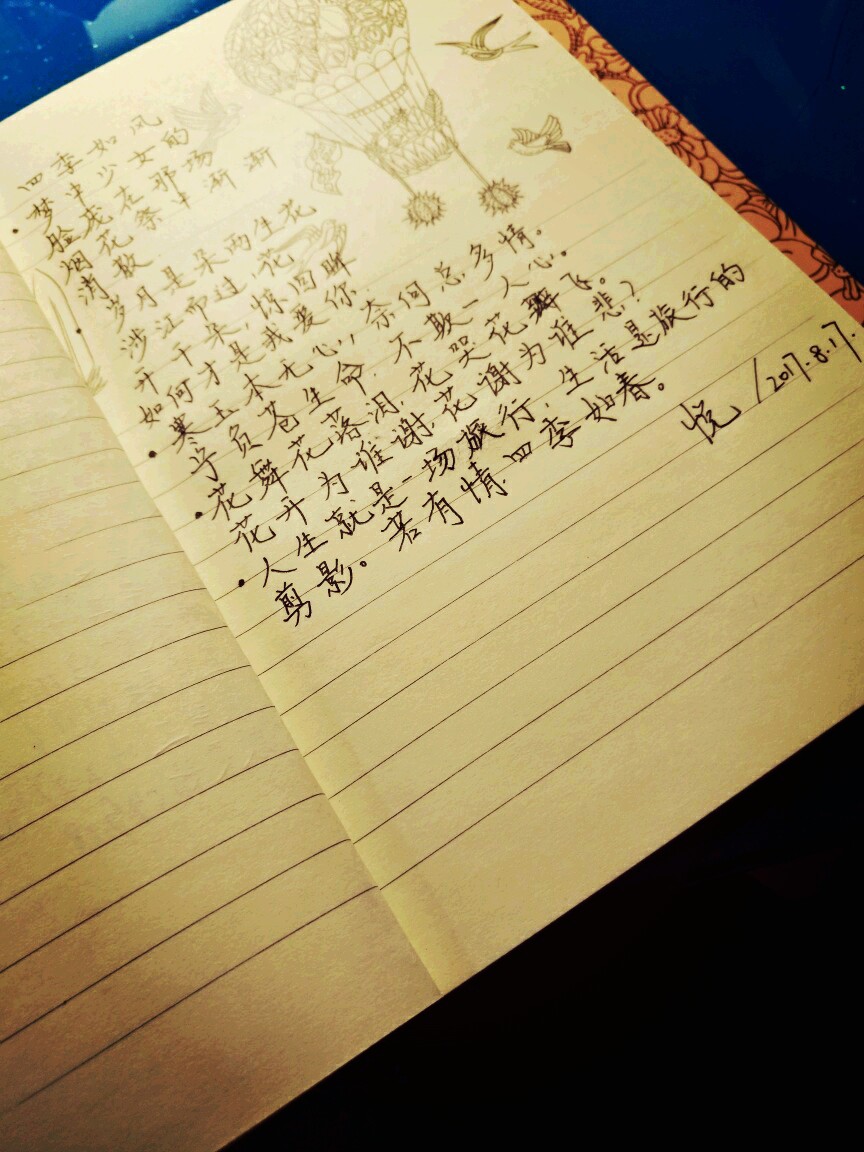 四季如风
·梦中少女的
脸庞在那场
烟花祭中渐渐
消散
·岁月是朵两生花
涉江而过,花
开千朵,惊回眸
如何才是我爱你
·寒玉本无心,奈何总多情。
宁负苍生命,不欺一人心。
·花舞花落泪,花哭花舞飞。
花开为谁谢,花谢为谁悲?
·人生就是一场旅行,生活是旅行的
剪影。若有情四季如春。
悦/2017.8.17.